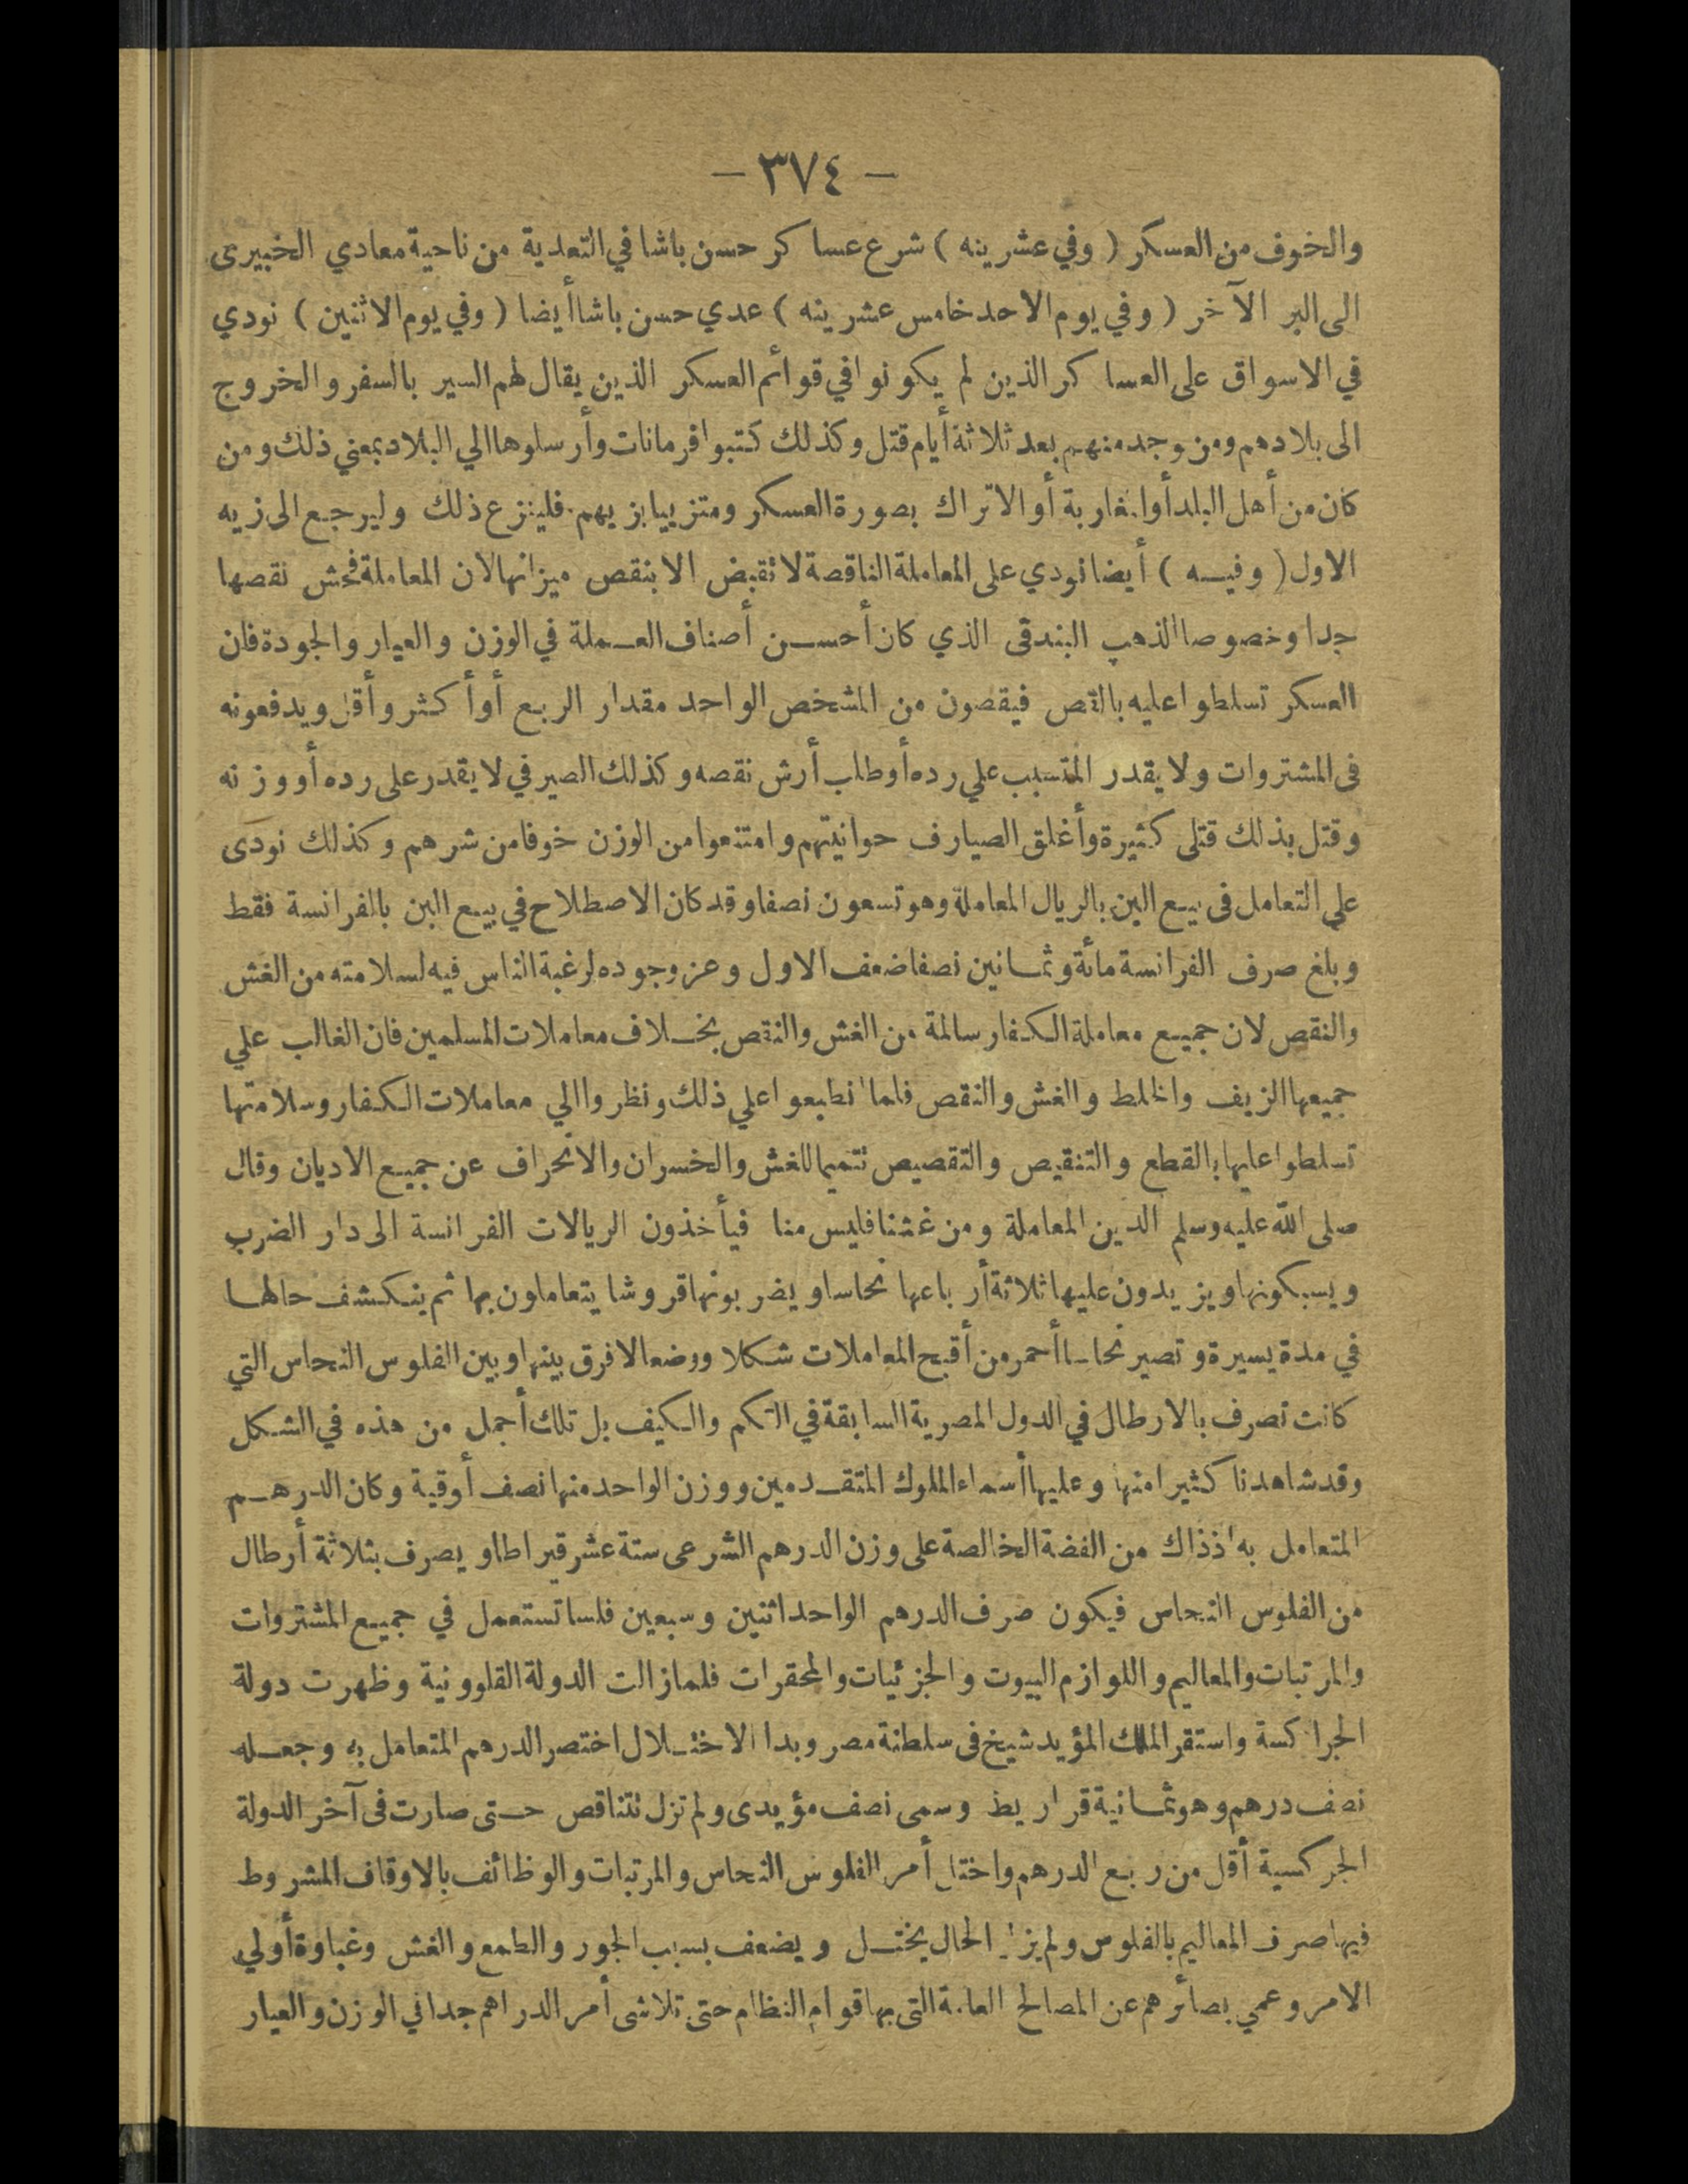 — ٣٧٤ —
والخوف من العسكر ( وفي عشرينه ) شرع عساكر حسن باشا في التعدية من ناحية معادي الخبيرى
الى البر الآخر ( وفي يوم الاحد خامس عشرينه ) عدي حسن باشا أيضا ( وفي يوم الاثنين ) نودي
في الاسواق على العساكر الذين لم يكونوا في قوائم العسكر الذين يقال لهم السير بالسفر والخروج
الى بلادهم ومن وجد منهم بعد ثلاثة أيام قتل وكذلك كتبوا فرمانات وأرسلوها الي البلاد بمعني ذلك ومن
كان من أهل البلد أو المغاربة أو الاتراك بصورة العسكر ومتزييا بزيهم فلينزع ذلك وليرجع الى زيه
الاول ( وفيه ) أيضا نودي على المعاملة الناقصة لا تقبض الا بنقص ميزانها لان المعاملة فحش نقصها
جدا وخصوصا الذهب البندقى الذي كان أحسن أصناف العملة في الوزن والعيار والجودة فان
العسكر تسلطوا عليه بالقص فيقصون من المشخص الواحد مقدار الربع أو أكثر وأقل ويدفعونه
فى المشتروات ولا يقدر المتسبب علي رده أو طلب أرش نقصه وكذلك الصيرفي لا يقدر على رده أو وزنه
وقتل بذلك قتلى كثيرة وأغلق الصيارف حوانيتهم وامتنعوا من الوزن خوفا من شرهم وكذلك نودى
علي التعامل فى بيع البن بالريال المعاملة وهو تسعون نصفا وقد كان الاصطلاح في بيع البن بالفرانسة فقط
وبلغ صرف الفرانسة مائة وثمانين نصفا ضعف الاول وعز وجوده لرغبة الناس فيه لسلامته من الغش
والنقص لان جميع معاملة الكفار سالمة من الغش والنقص بخلاف معاملات المسلمين فان الغالب علي
جميعها الزيف والخلط والغش والنقص فلما انطبعوا علي ذلك ونظروا الي معاملات الكفار وسلامتها
تسلطوا عليها بالقطع والتنقيص والتقصيص تتميما للغش والخسران والانحراف عن جميع الاديان وقال
صلى الله عليه وسلم الدين المعاملة ومن غشنا فليس منا فيأخذون الريالات الفرانسة الى دار الضرب
ويسبكونها ويزيدون عليها ثلاثة أرباعها نحاسا ويضربونها قروشا يتعاملون بها ثم ينكشف حالها
في مدة يسيرة وتصير نحاسا أحمر من أقبح المعاملات شكلا ووضعا لا فرق بينها وبين الفلوس النحاس التي
كانت تصرف بالارطال في الدول المصرية السابقة في الكم والكيف بل تلك أجمل من هذه في الشكل
وقد شاهدنا كثيرا منها وعليها أسماء الملوك المتقدمين ووزن الواحد منها نصف أوقية وكان الدرهم
المتعامل به اذذاك من الفضة الخالصة على وزن الدرهم الشرعى ستة عشر قيراطا ويصرف بثلاثة أرطال
من الفلوس النحاس فيكون صرف الدرهم الواحد اثنين وسبعين فلسا تستعمل في جميع المشتروات
والمرتبات والمعاليم واللوازم البيوت والجزئيات والمحقرات فلما زالت الدولة القلاوونية وظهرت دولة
الجراكسة واستقر الملك المؤيد شيخ فى سلطنة مصر وبدا الاختلال اختصر الدرهم المتعامل به وجعله
نصف درهم وهو ثمانية قراريط وسمى نصف مؤيدى ولم تزل تتناقص حتى صارت فى آخر الدولة
الجركسية أقل من ربع الدرهم واختل أمر الفلوس النحاس والمرتبات والوظائف بالاوقاف المشروط
فيها صرف المعاليم بالفلوس ولم يزل الحال يختل ويضعف بسبب الجور والطمع والغش وغباوة أولي
الامر وعمي بصائرهم عن المصالح العامة التى بها قوام النظام حتى تلاشى أمر الدراهم جدا في الوزن والعيار